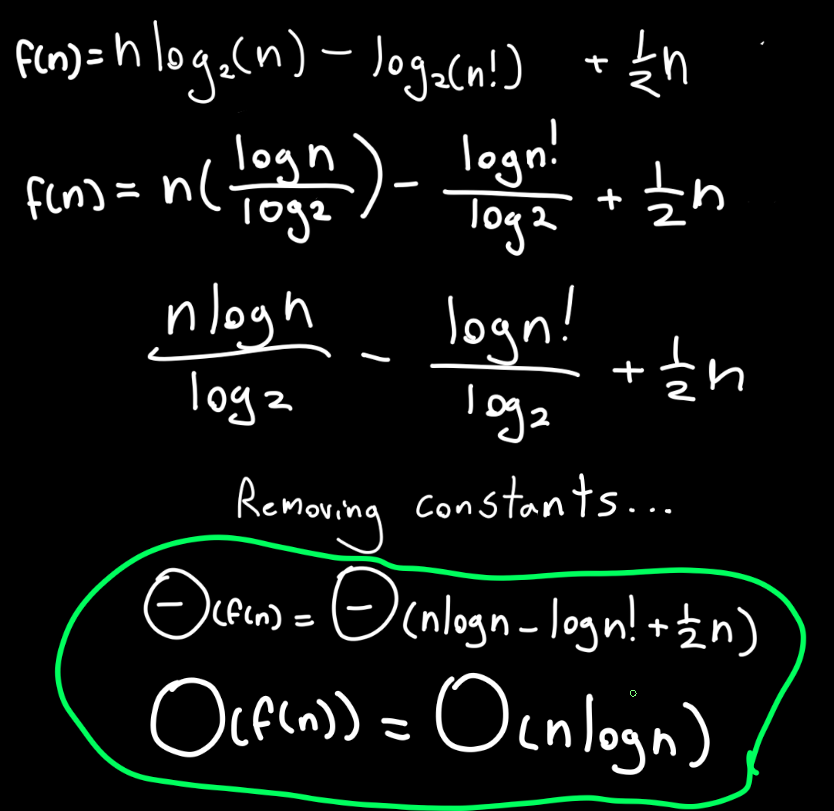 f(n) = n log₂(n) − log₂(n!) + ½n
f(n) = n(logn/log2) − logn!/log2 + ½n
nlogn/log2 − logn!/log2 + ½n
Removing constants...
Θ(f(n) = Θ(nlogn − logn! + ½n)
O(f(n)) = O(nlogn)